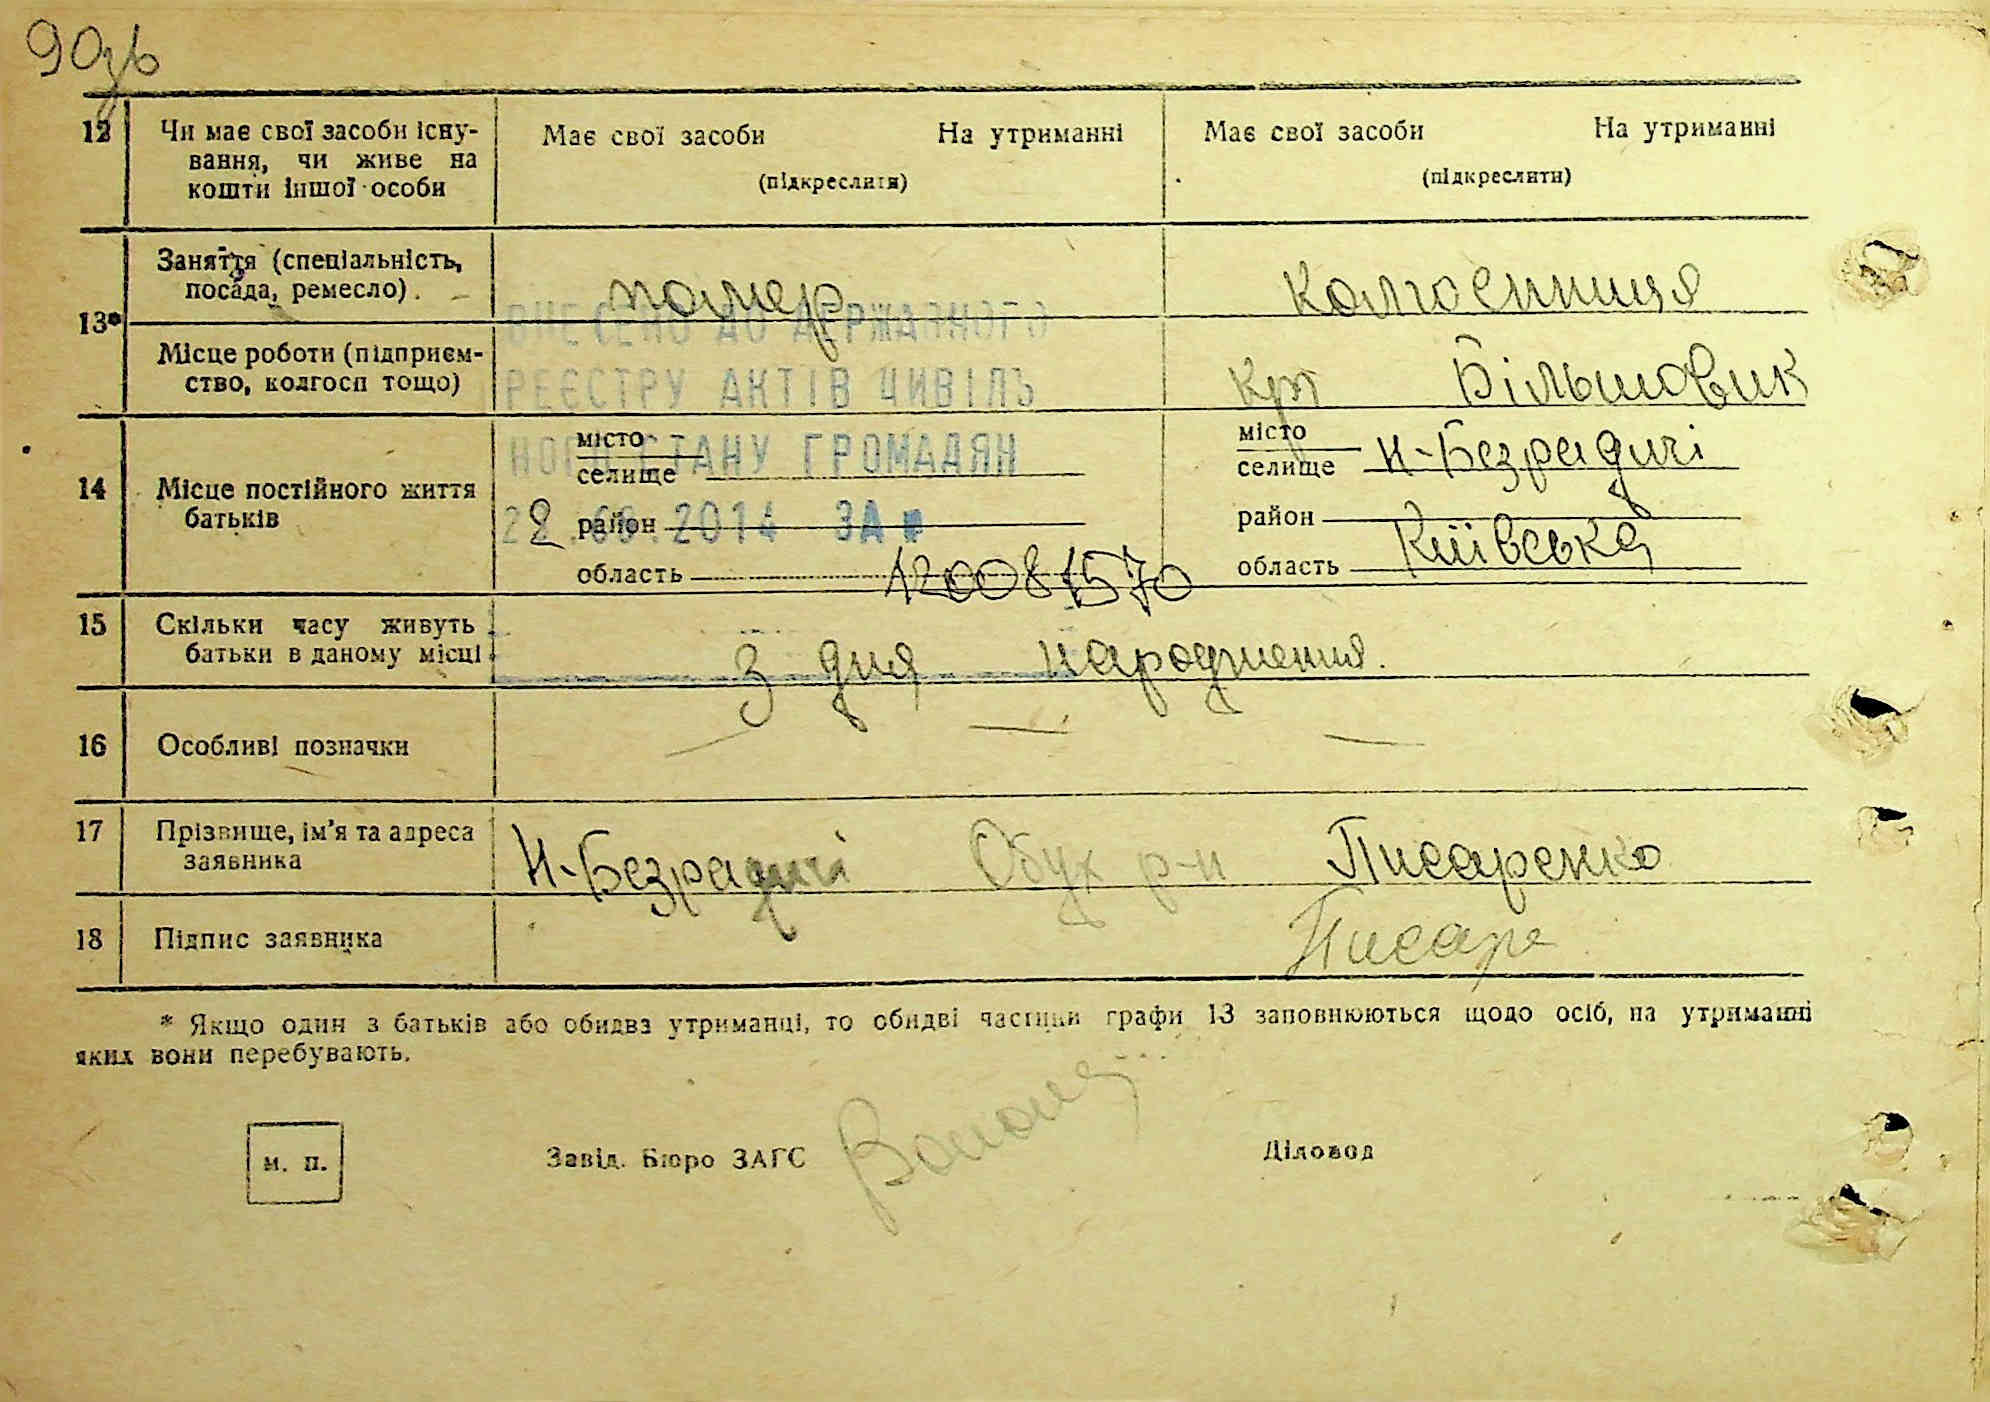 90зв
12 Чи має свої засоби існу- Має свої засоби На утриманні Має свої засоби На утриманні
вання, чи живе на (підкреслити) (підкреслити)
кошти іншої особи
13* Заняття (спеціальність, помер колгоспниця
посада, ремесло).
ВНЕСЕНО ДО ДЕРЖАВНОГО
Місце роботи (підприєм- Більшовик
ство, колгосп тощо)
РЕЄСТРУ АКТІВ ЦИВІЛЬ
НОГО СТАНУ ГРОМАДЯН
14 Місце постійного життя місто місто
батьків селище селище Н-Безрадичі
район район
2014 ЗА №
область область Київська
120081570
15 Скільки часу живуть з дня народження.
батьки в даному місці
16 Особливі позначки — — —
17 Прізвище, ім'я та адреса Н-Безрадичі Обух р-н Писаренко
заявника
18 Підпис заявника Писаре
* Якщо один з батьків або обидва утриманці, то обидві частини графи 13 заповнюються щодо осіб, на утриманні
яких вони перебувають.
м. п. Завід. Бюро ЗАГС Діловод